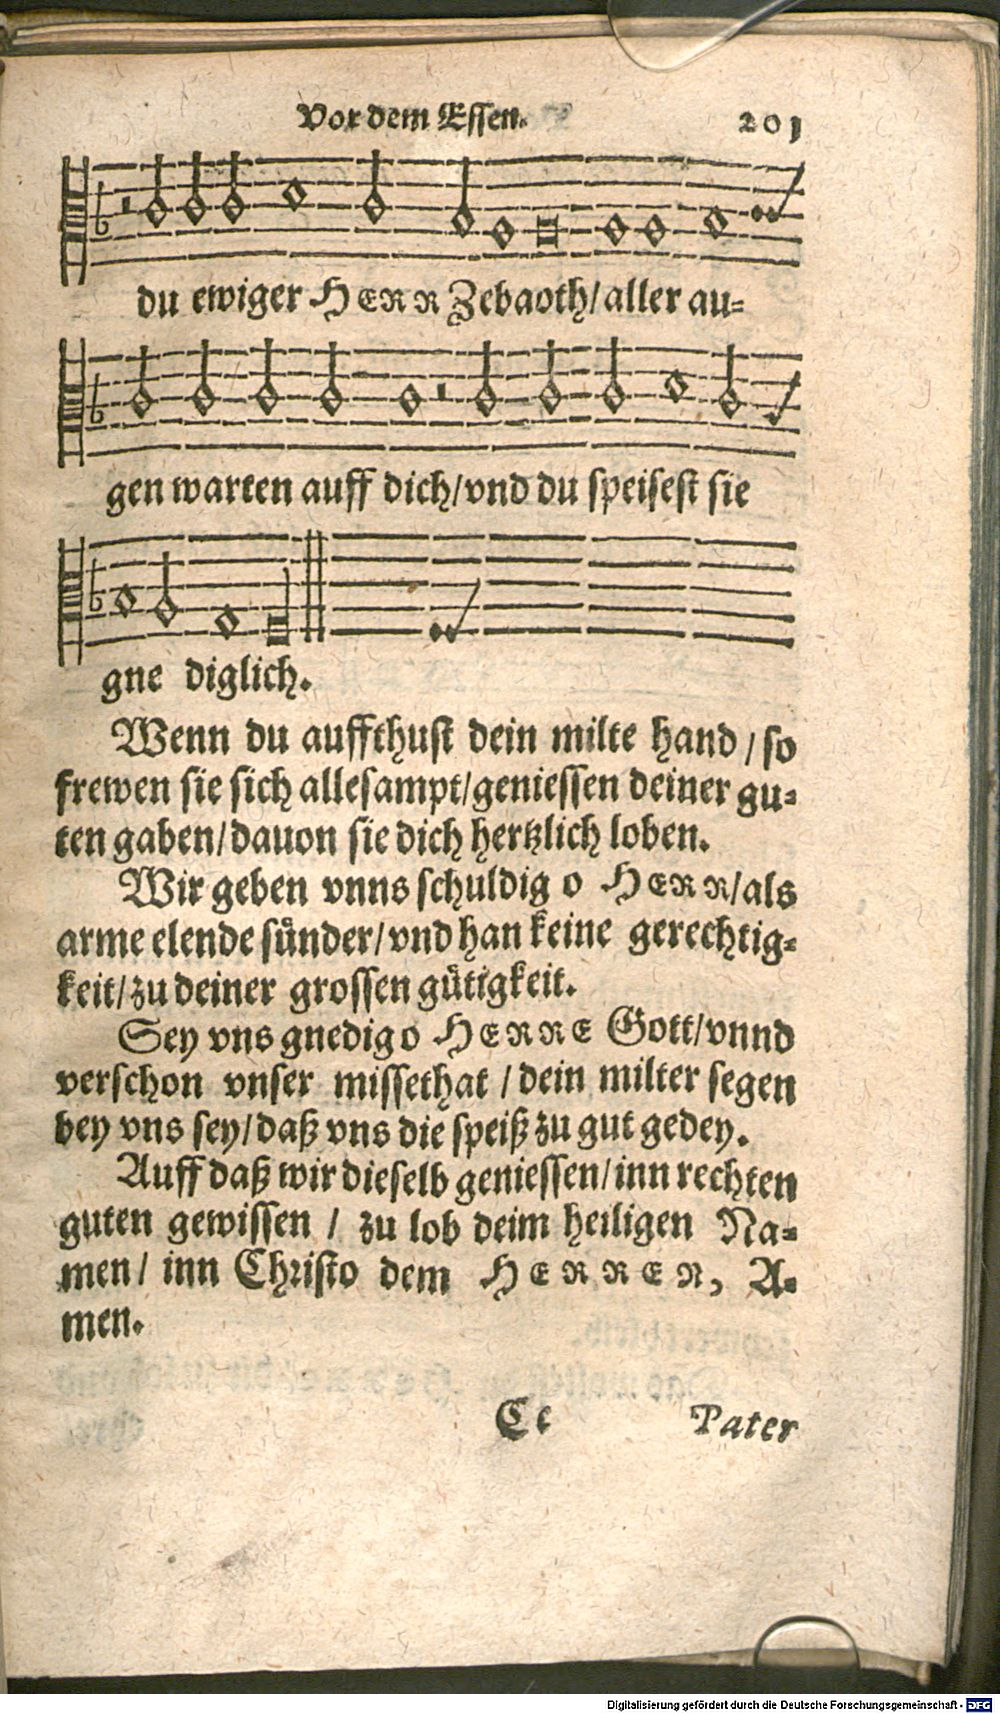 Vor dem Essen. 201
du ewiger HERR Zebaoth/ aller au-
gen warten auff dich/ vnd du speisest sie
gne diglich.
Wenn du auffthust dein milte hand / so
frewen sie sich allesampt/ geniessen deiner gu-
ten gaben/ dauon sie dich hertzlich loben.
Wir geben vnns schuldig o HERR/ als
arme elende sünder/ vnd han keine gerechtig-
keit/ zu deiner grossen gütigkeit.
Sey vns gnedig o HERRE Gott/ vnnd
verschon vnser missethat / dein milter segen
bey vns sey/ daß vns die speiß zu gut gedey.
Auff daß wir dieselb geniessen/ inn rechten
guten gewissen / zu lob deim heiligen Na-
men/ inn Christo dem HERREN, A-
men.
Cc Pater
Digitalisierung gefördert durch die Deutsche Forschungsgemeinschaft - DFG